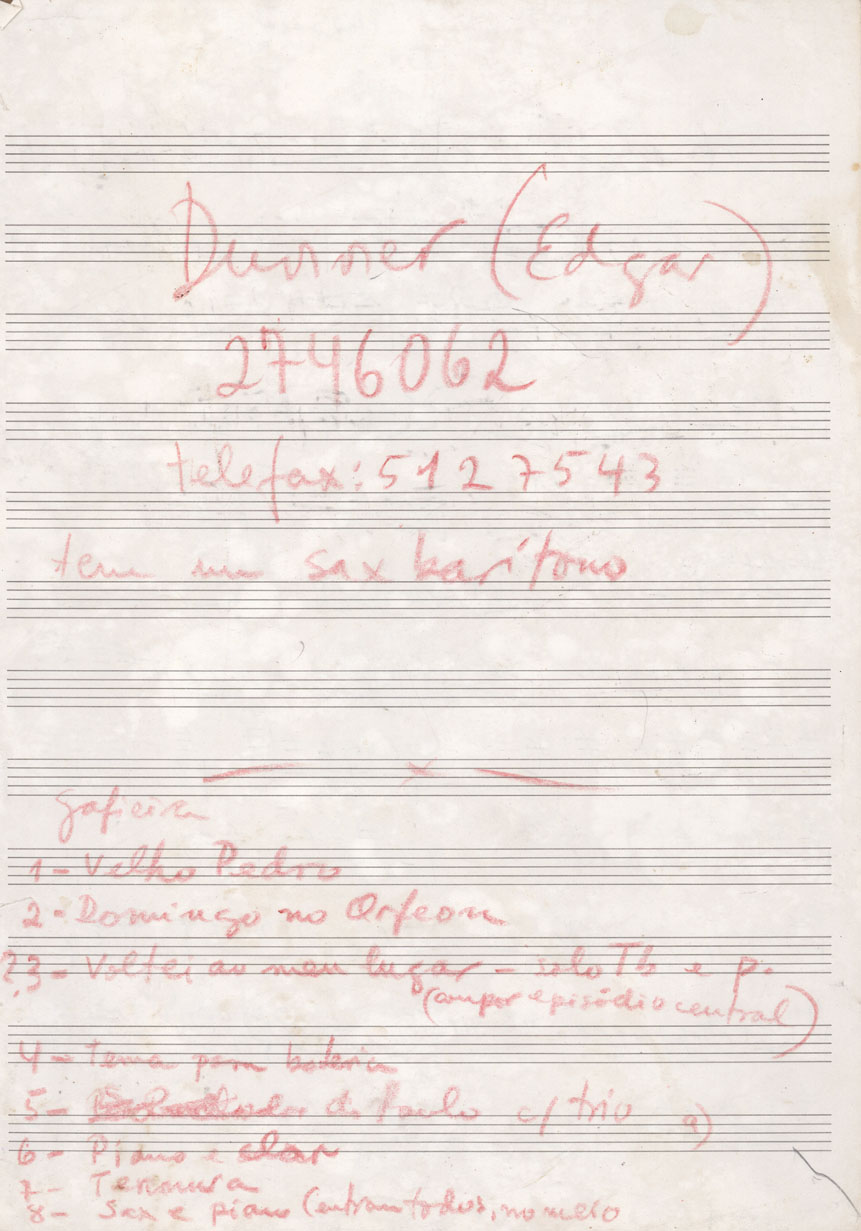 Duvivier (Edgar)
2746062
telefax: 5127543
tem um sax barítono
x
gafieira
1 - Velho Pedro
2 - Domingo no Orfeon
? 3 - Voltei ao meu lugar - solo Tb e p.
(compor episódio central)
4 - Tema para bateria
5 - do Paulo c/ trio a)
6 - Piano e
7 - Ternura
8 - Sax e piano (entram todos, no meio